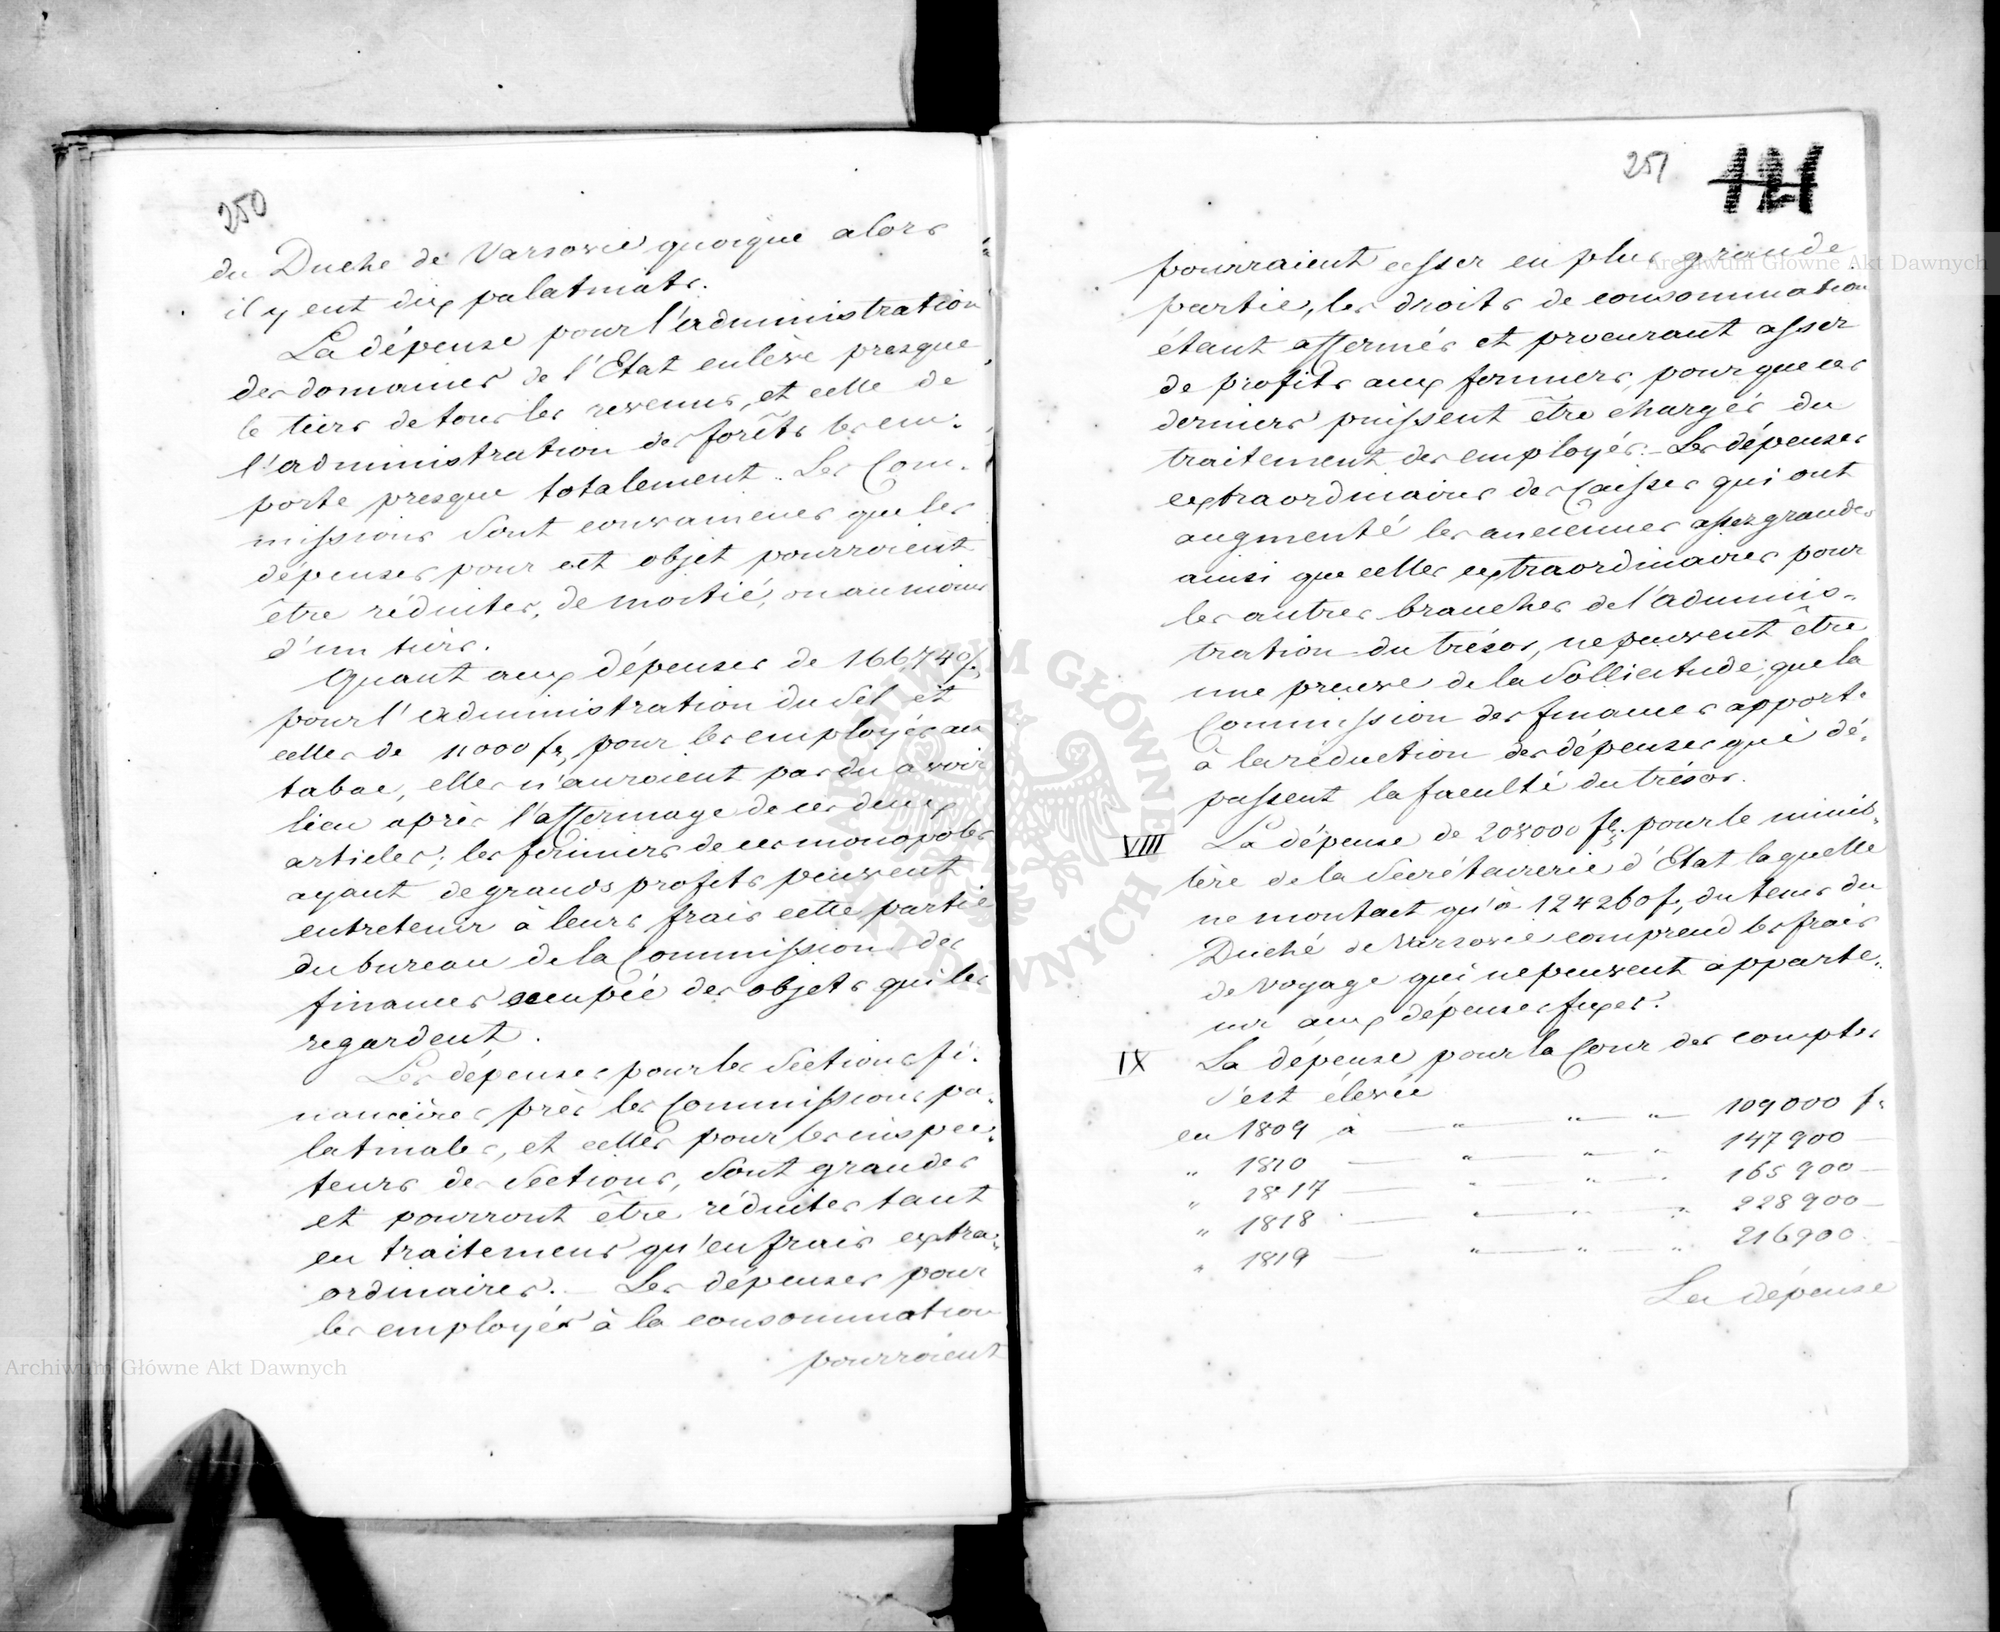 250
du Duche de Varsovie quoique alors
il y eut dix palatinats.
La dépense pour l'administration
des domaines de l'Etat enlève presque
le tiers de tous les revenus, et celle de
l'administration des forêts les em-
porte presque totalement. Les Com-
missions sont convaincues que les
dépenses pour cet objet pourroient
être réduites, de moitié, ou au moins
d'un tiers.
Quant aux dépenses de 166,740 f.
pour l'administration du Sel et
celles de 11000 fs, pour les employés au
tabac, elles n'auroient pas du avoir
lieu après l'affermage de ces deux
articles; les fermiers de ces monopoles
ayant de grands profits peuvent
entretenir à leurs frais cette partie
du bureau de la Commission des
finances occupée des objets qui les
regardent.
Les dépenses pour les Sections fi-
nancières près les Commissions pa-
latinales, et celles pour les inspec-
teurs de Sections, sont grandes
et pourront être réduites tant
en traitemens qu'en frais extra-
ordinaires. – Les dépenses pour
les employés à la consommation
pourroient
251 121
pourraient cesser en plus grande
partie, les droits de consommation
étant affermés et procurant assez
de profits aux fermiers, pour que ces
derniers puissent être chargés du
traitement des employés. – Les dépenses
extraordinaires des Caisses qui ont
augmenté les anciennes assez grandes
ainsi que celles extraordinaires pour
les autres branches de l'adminis-
tration du trésor, ne peuvent être
une preuve de la Sollicitude, que la
Commission des finances apporte
à la réduction des dépenses qui dé-
passent la faculté du trésor.
VIII La dépense de 208000 fl. pour le minis-
tère de la Secrétairerie d'Etat laquelle
ne montait qu'à 124260 f, du tems du
Duché de Varsovie comprend les frais
de voyage qui ne peuvent apparte-
nir aux dépenses fixes.
IX La dépense pour la Cour des comptes
s'est élevée
en 1809 à — " " — " — 109000 fs
" 1810 — " — " — " 147900 —
" 1817 — " — " — " 165900 —
" 1818 — " — " — " 228900 —
" 1819 — " — " — " 216900 —
La dépense
Archiwum Główne Akt Dawnych
Archiwum Główne Akt Dawnych
ARCHIWUM GŁÓWNE AKT DAWNYCH